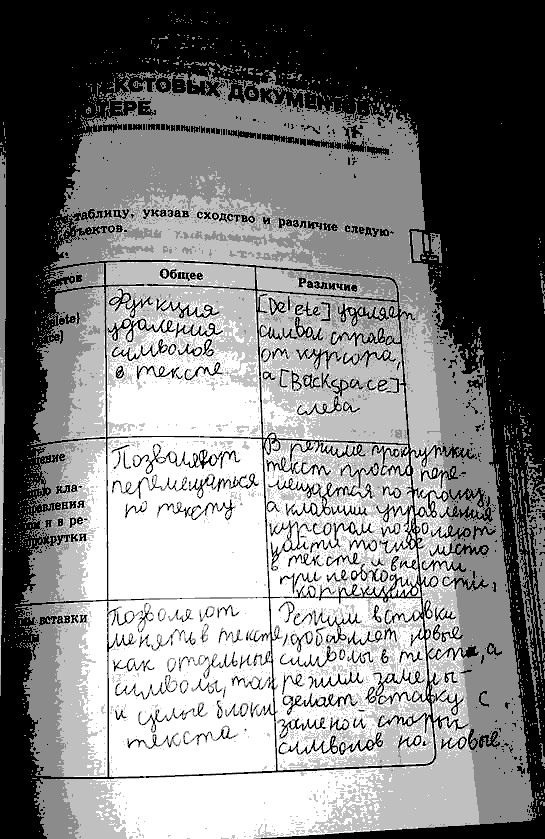 ТЕКСТОВЫХ ДОКУМЕНТОВ
таблицу, указав сходство и различие следую-
объектов.
Общее
Различие
Функция
удаления
символов
в тексте
[Delete] удаляет
символ справа
от курсора,
а [Backspace]-
слева
Позволяют
перемещаться
по тексту
В режиме прокрутки
текст просто пере-
мещается по экрану,
а клавиши управления
курсором позволяют
найти точное место
в тексте и внести,
при необходимости,
коррекцию
вставки
Позволяют
менять в тексте
как отдельные
символы, так
и целые блоки
текста.
Режим вставки
добавляет новые
символы в текст, а
режим замены-
делает вставку с
заменой старых
символов на новые